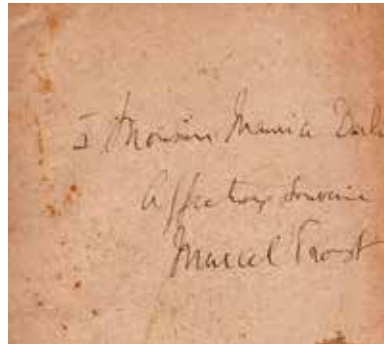 à Monsieur Maurice
Affectueux Souvenir
Marcel Proust